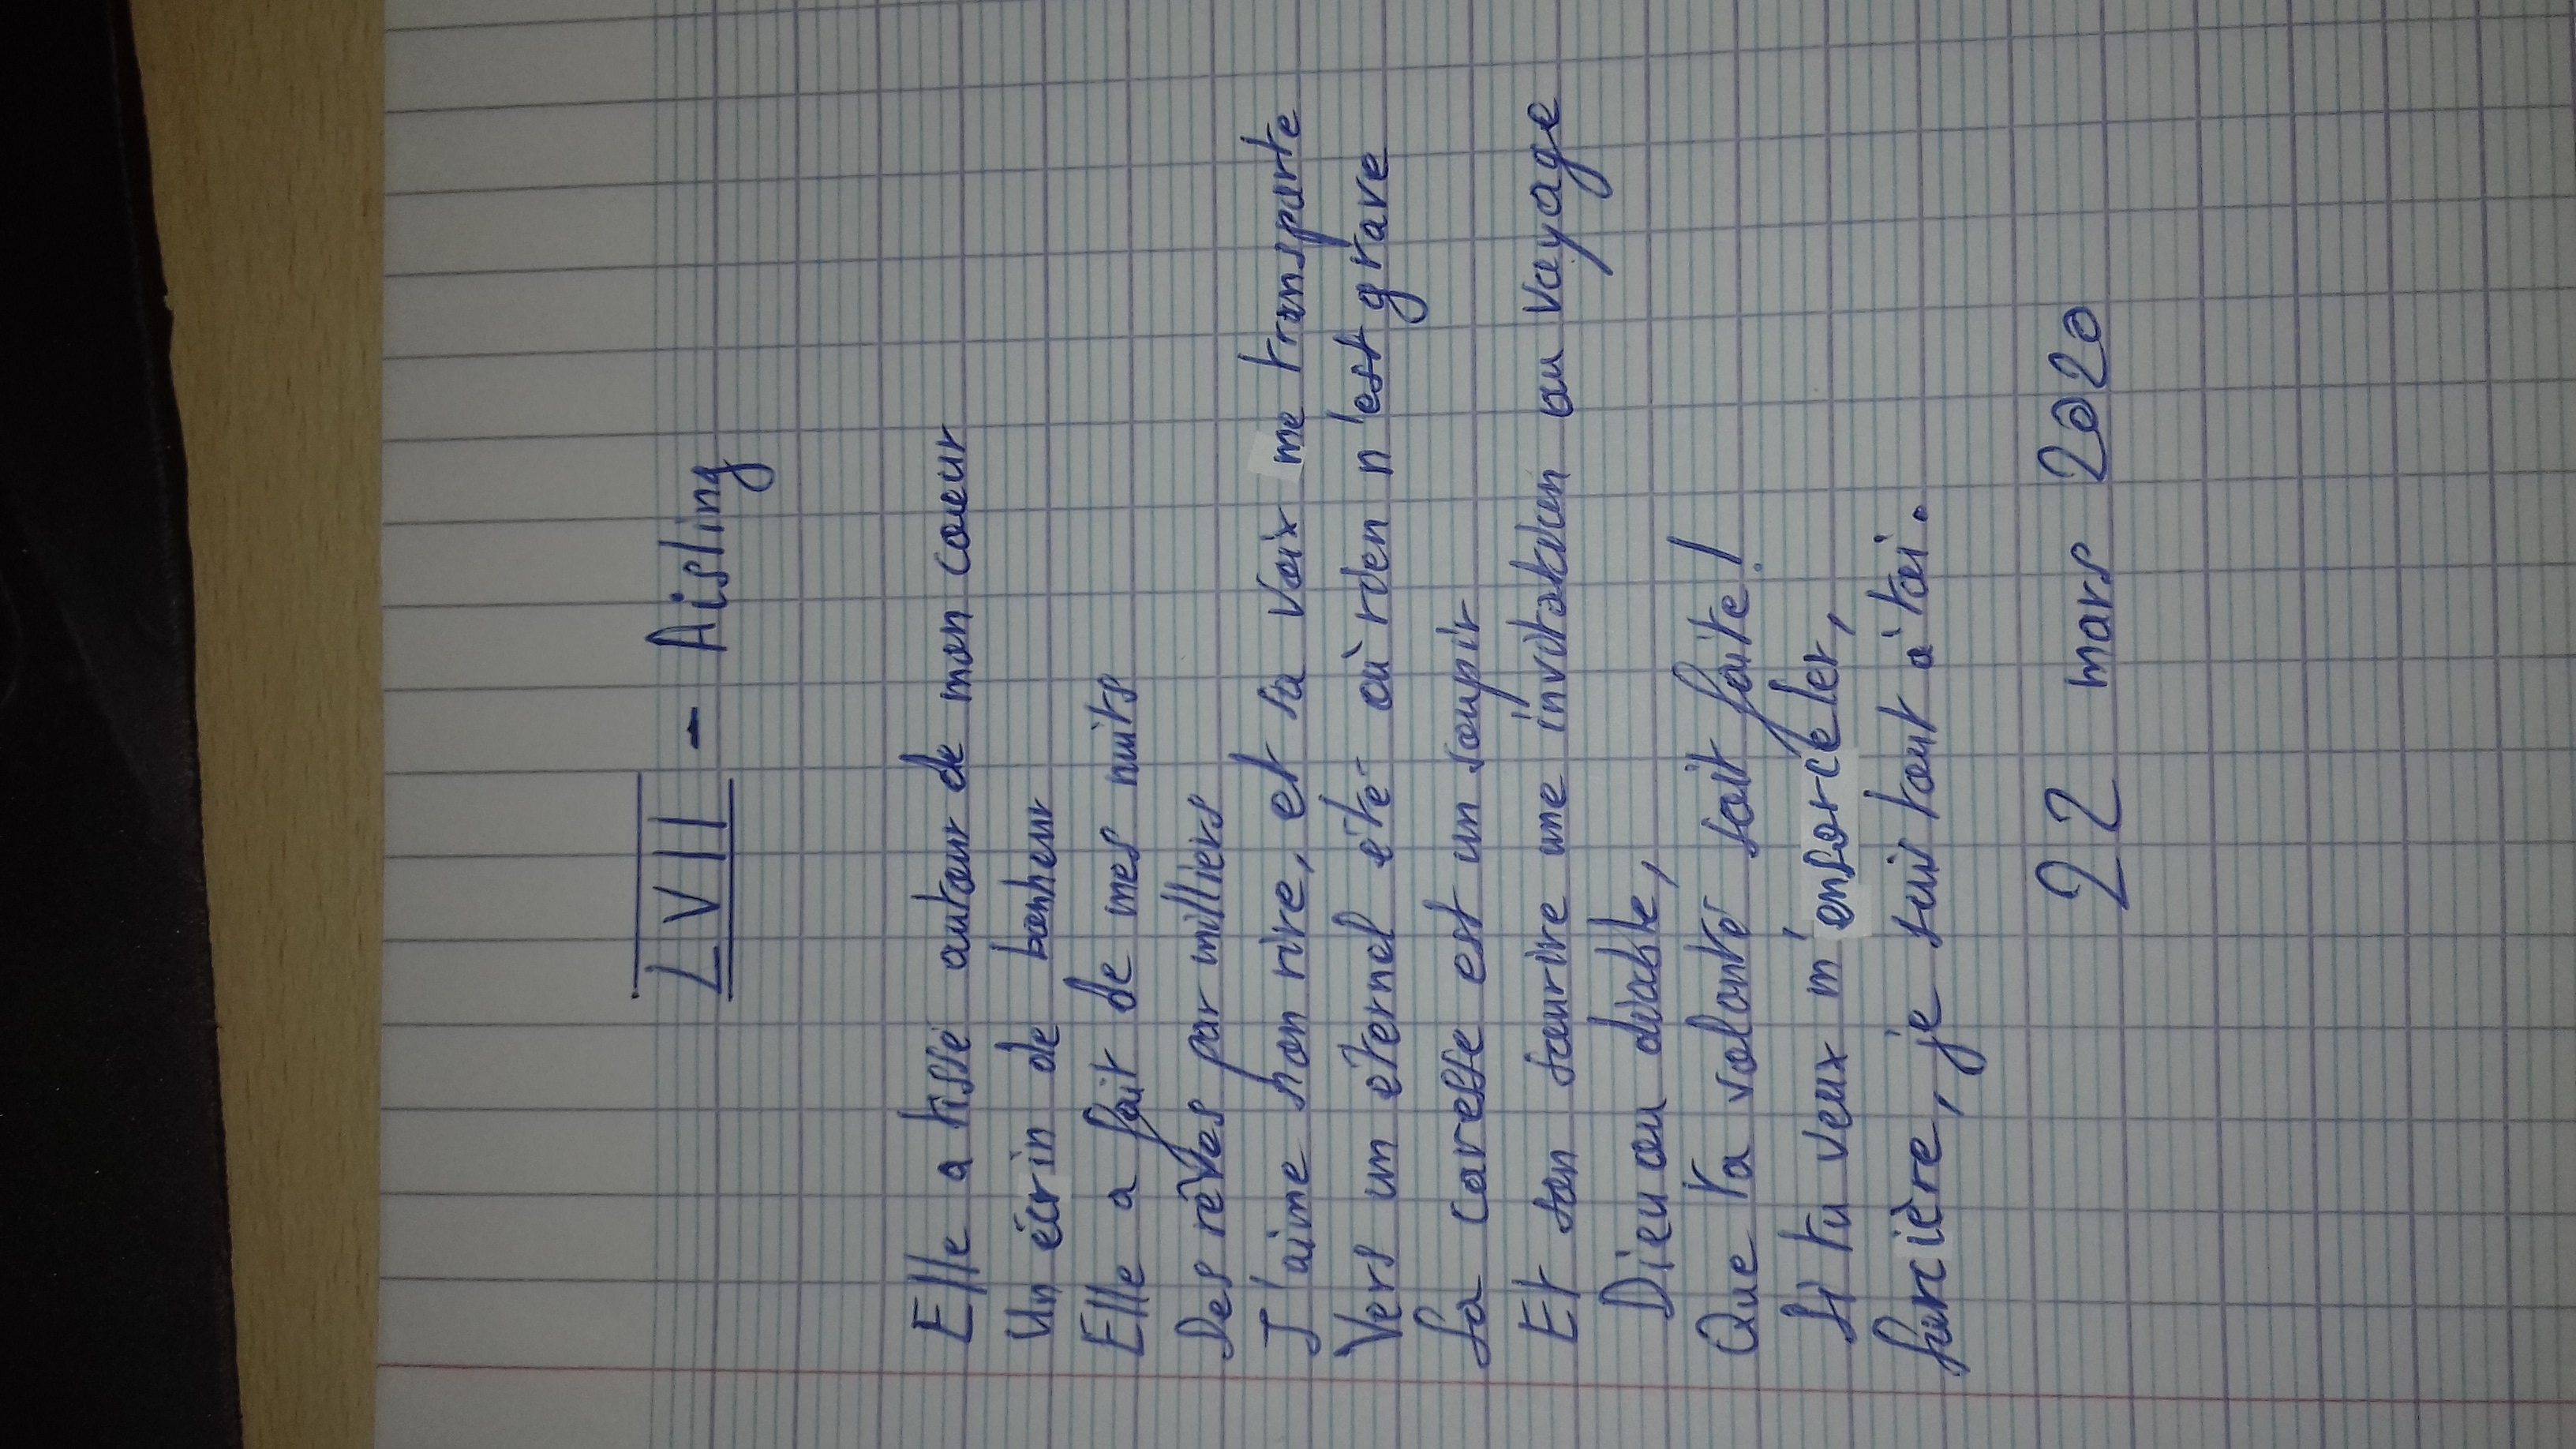 LVII - Aisling
Elle a tissé autour de mon coeur
Un écrin de bonheur
Elle a fait de mes nuits
Des rêves par milliers
J'aime son rire, et sa voix me transporte
Vers un éternel été où rien n'est grave
Sa caresse est un soupir
Et son sourire une invitation au voyage
Dieu ou diable,
Que ta volonté soit faite !
Si tu veux m'ensorceler,
Sorcière, je suis tout à toi.
22 mars 2020